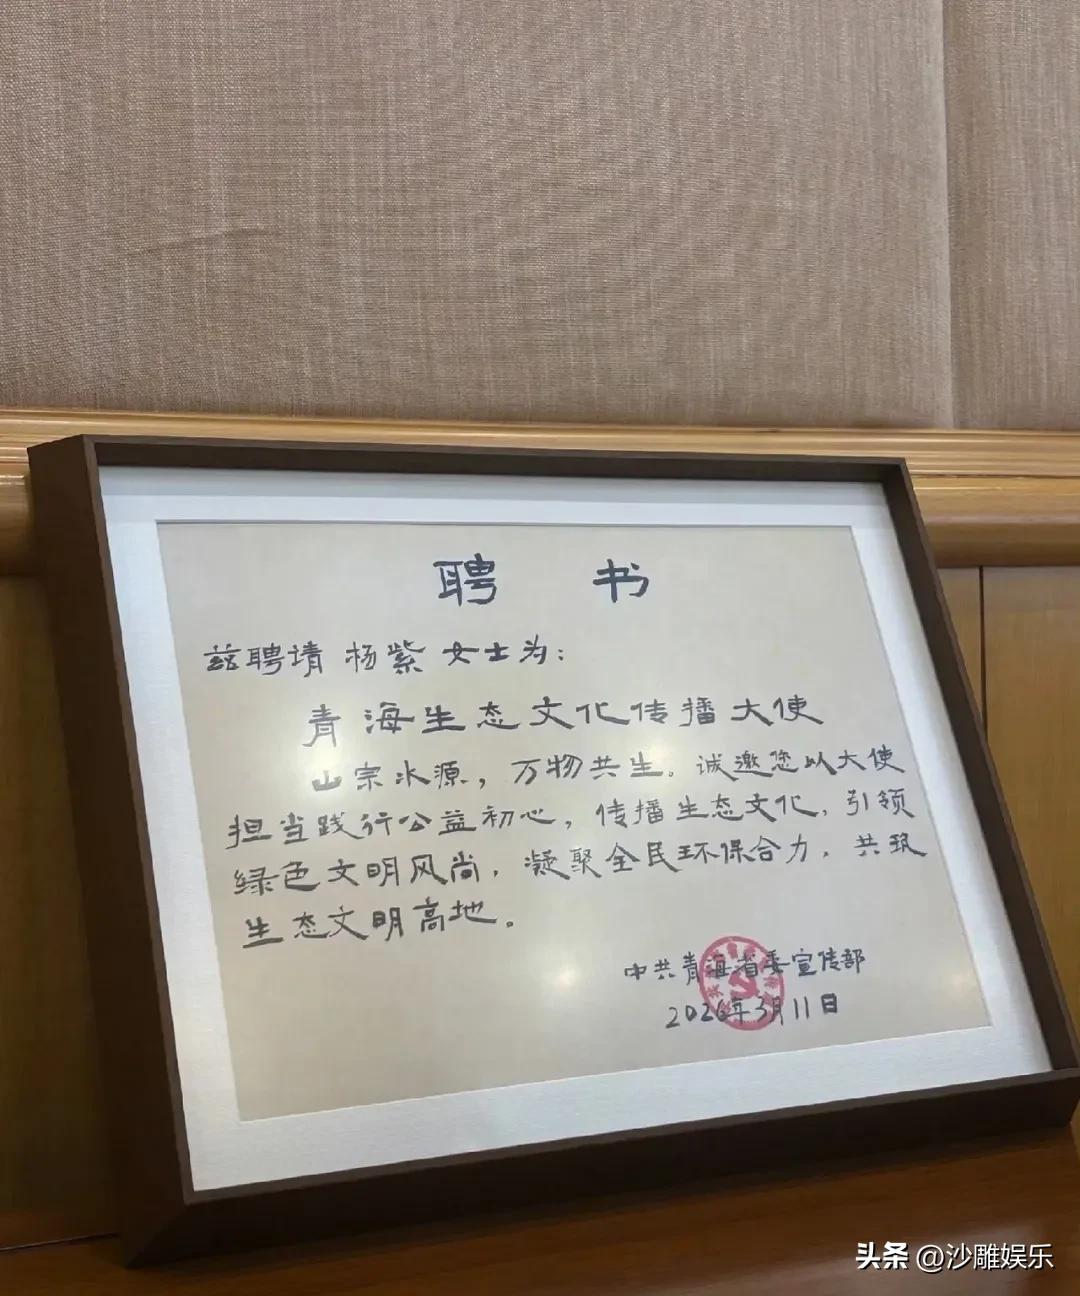 聘 书
兹聘请 杨紫 女士为：
青海生态文化传播大使
山宗水源，万物共生。诚邀您以大使
担当践行公益初心，传播生态文化，引领
绿色文明风尚，凝聚全民环保合力，共筑
生态文明高地。
中共青海省委宣传部
2026年3月11日
头条 @沙雕娱乐